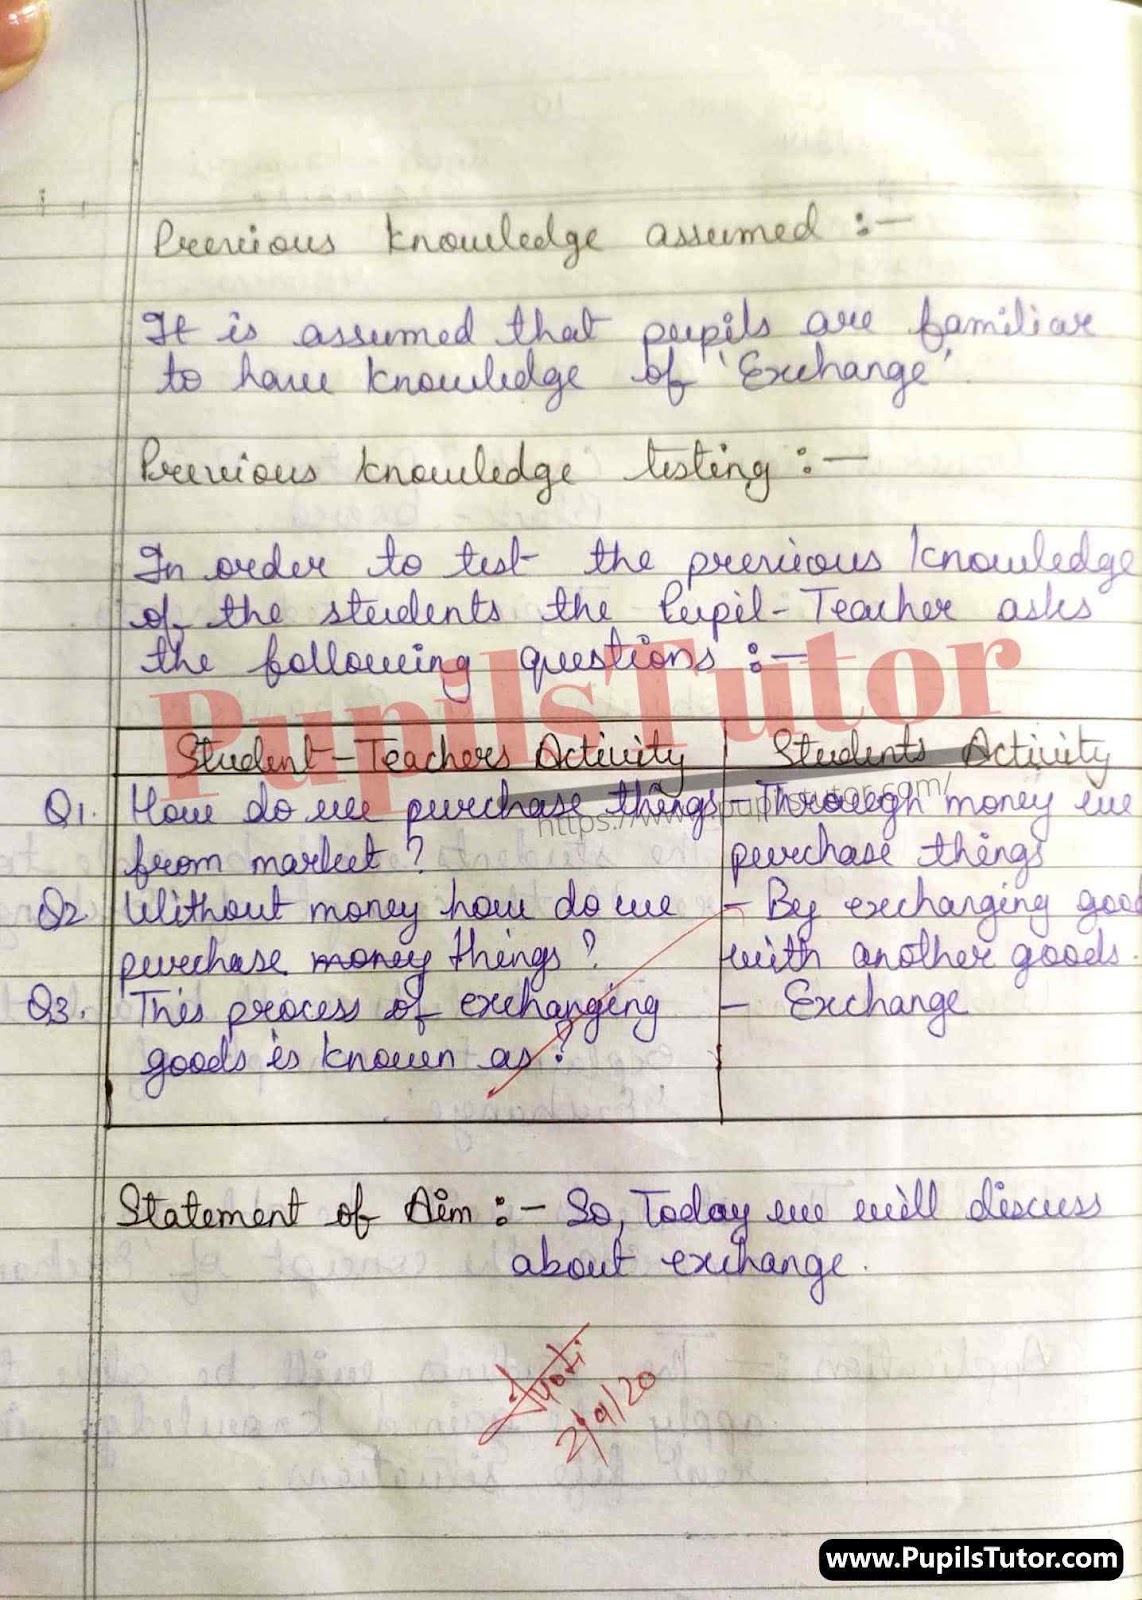 Previous knowledge assumed :-
It is assumed that pupils are familiar
to have knowledge of 'Exchange'.
Previous knowledge testing :-
In order to test the previous knowledge
of the students the Pupil-Teacher asks
the following questions :-
PupilsTutor
Student-Teachers Activity Students Activity
Q1. How do we purchase things - Through money we
from market? purchase things
Q2 Without money how do we - By exchanging good
purchase money things? with another goods.
Q3. This process of exchanging - Exchange
goods is known as?
Statement of Aim :- So, Today we will discuss
about exchange.
Jyoti
2/9/20
www.PupilsTutor.com